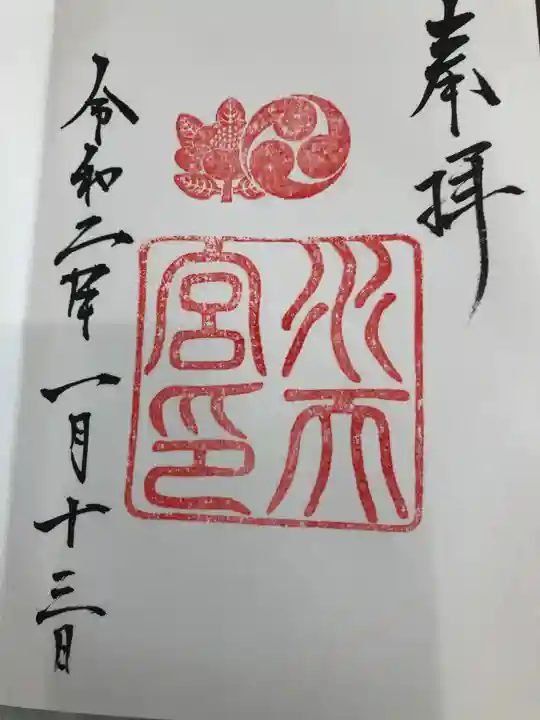 奉拝
水天
宮印
令和二年一月十三日